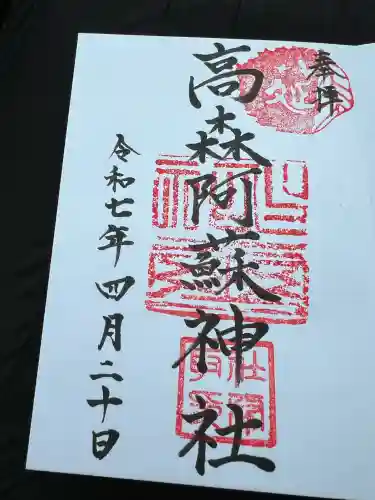 奉拝
高森阿蘇神社
令和七年四月二十日